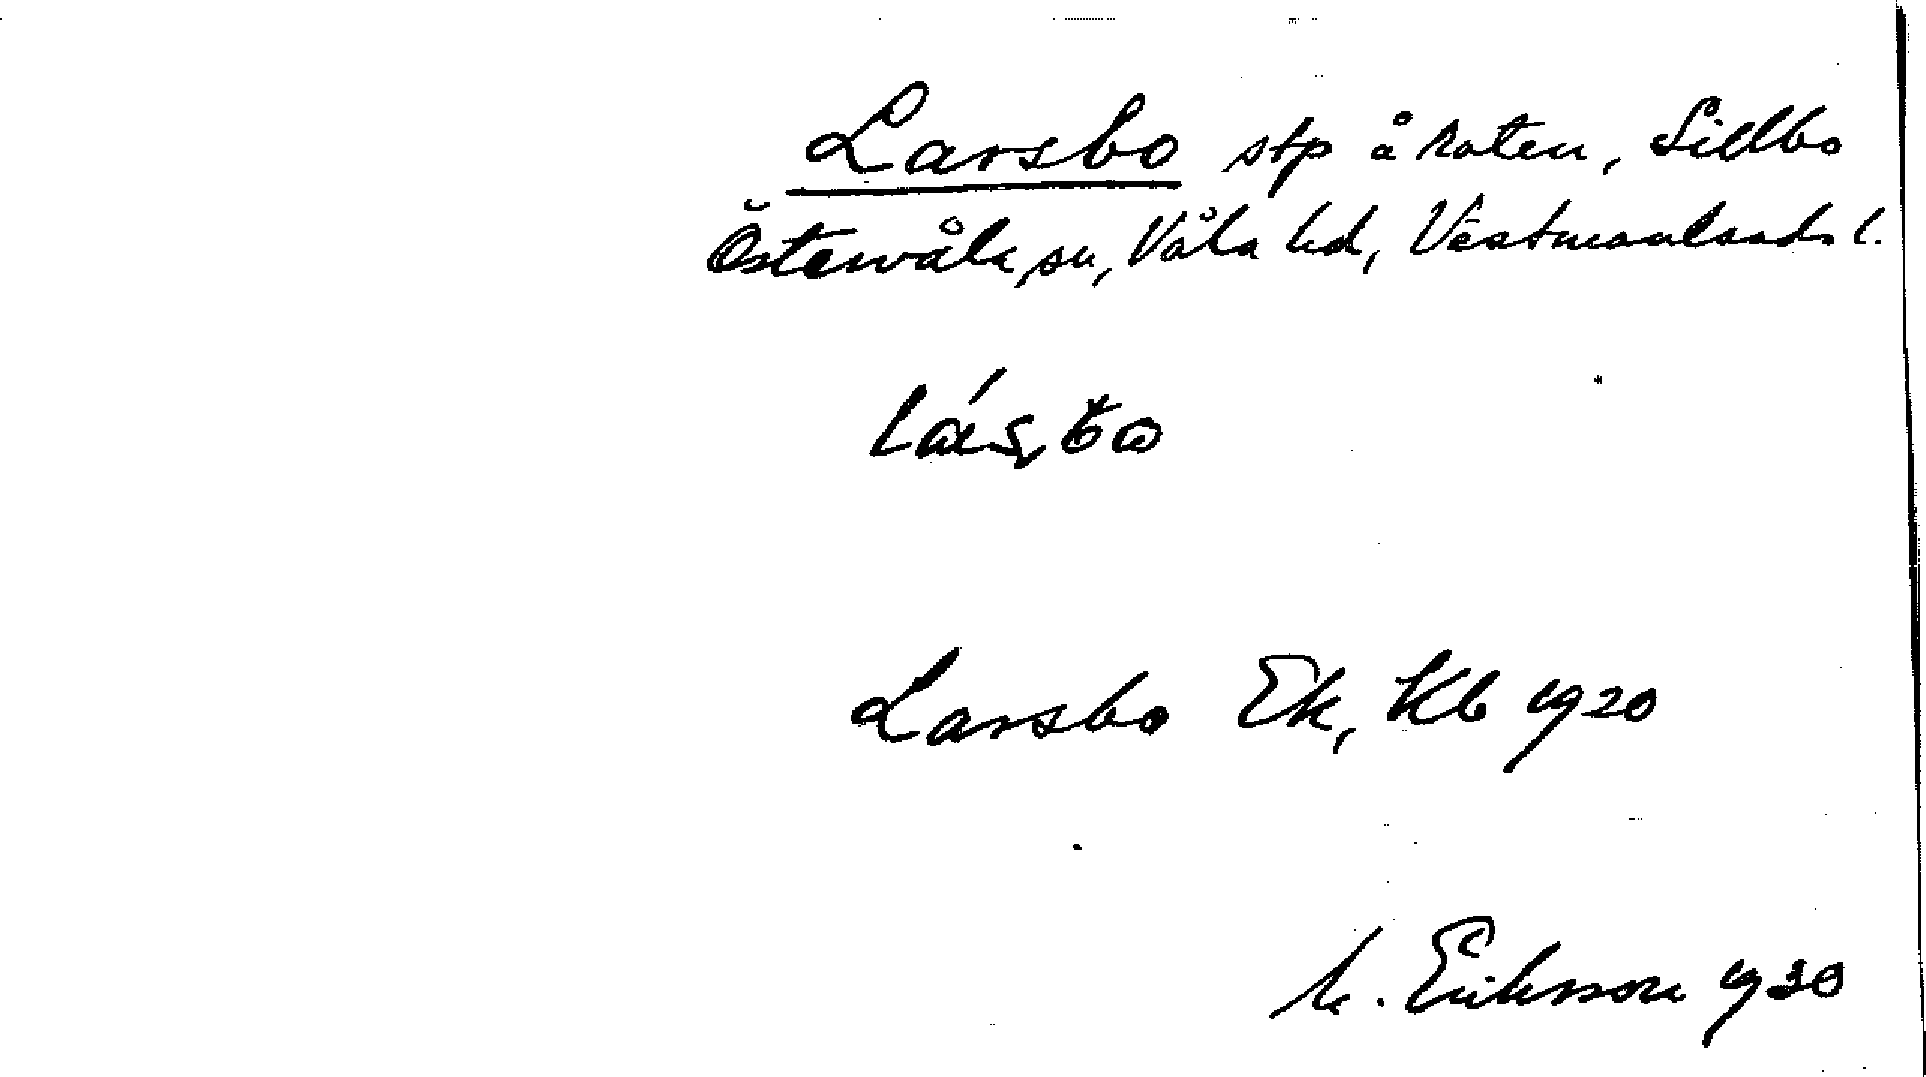 Larsbo stp å roten, Sillbo
Östervåla sn, Våla hd, Västmanlands l.
Larsbo Ek, Kb 1920
M. Eriksson 1930